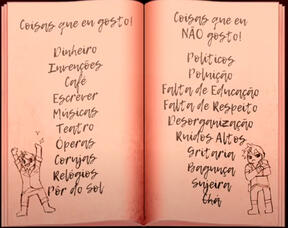 Coisas que eu gosto!
Dinheiro
Invenções
Café
Escrever
Músicas
Teatro
Operas
Corujas
Relógios
Pôr do Sol
Coisas que eu
NÃO gosto!
Políticos
Poluição
Falta de Educação
Falta de Respeito
Desorganização
Ruídos Altos
Gritaria
Bagunça
Sujeira
Chá